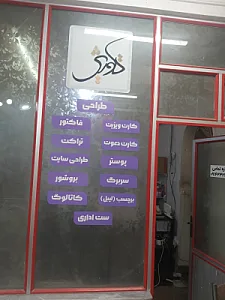 طراحی
کارت ویزیت
فاکتور
کارت صوت
تراکت
پوستر
طراحی سایت
سربرگ
بروشور
برچسب (لیبل)
کاتالوگ
ست اداری